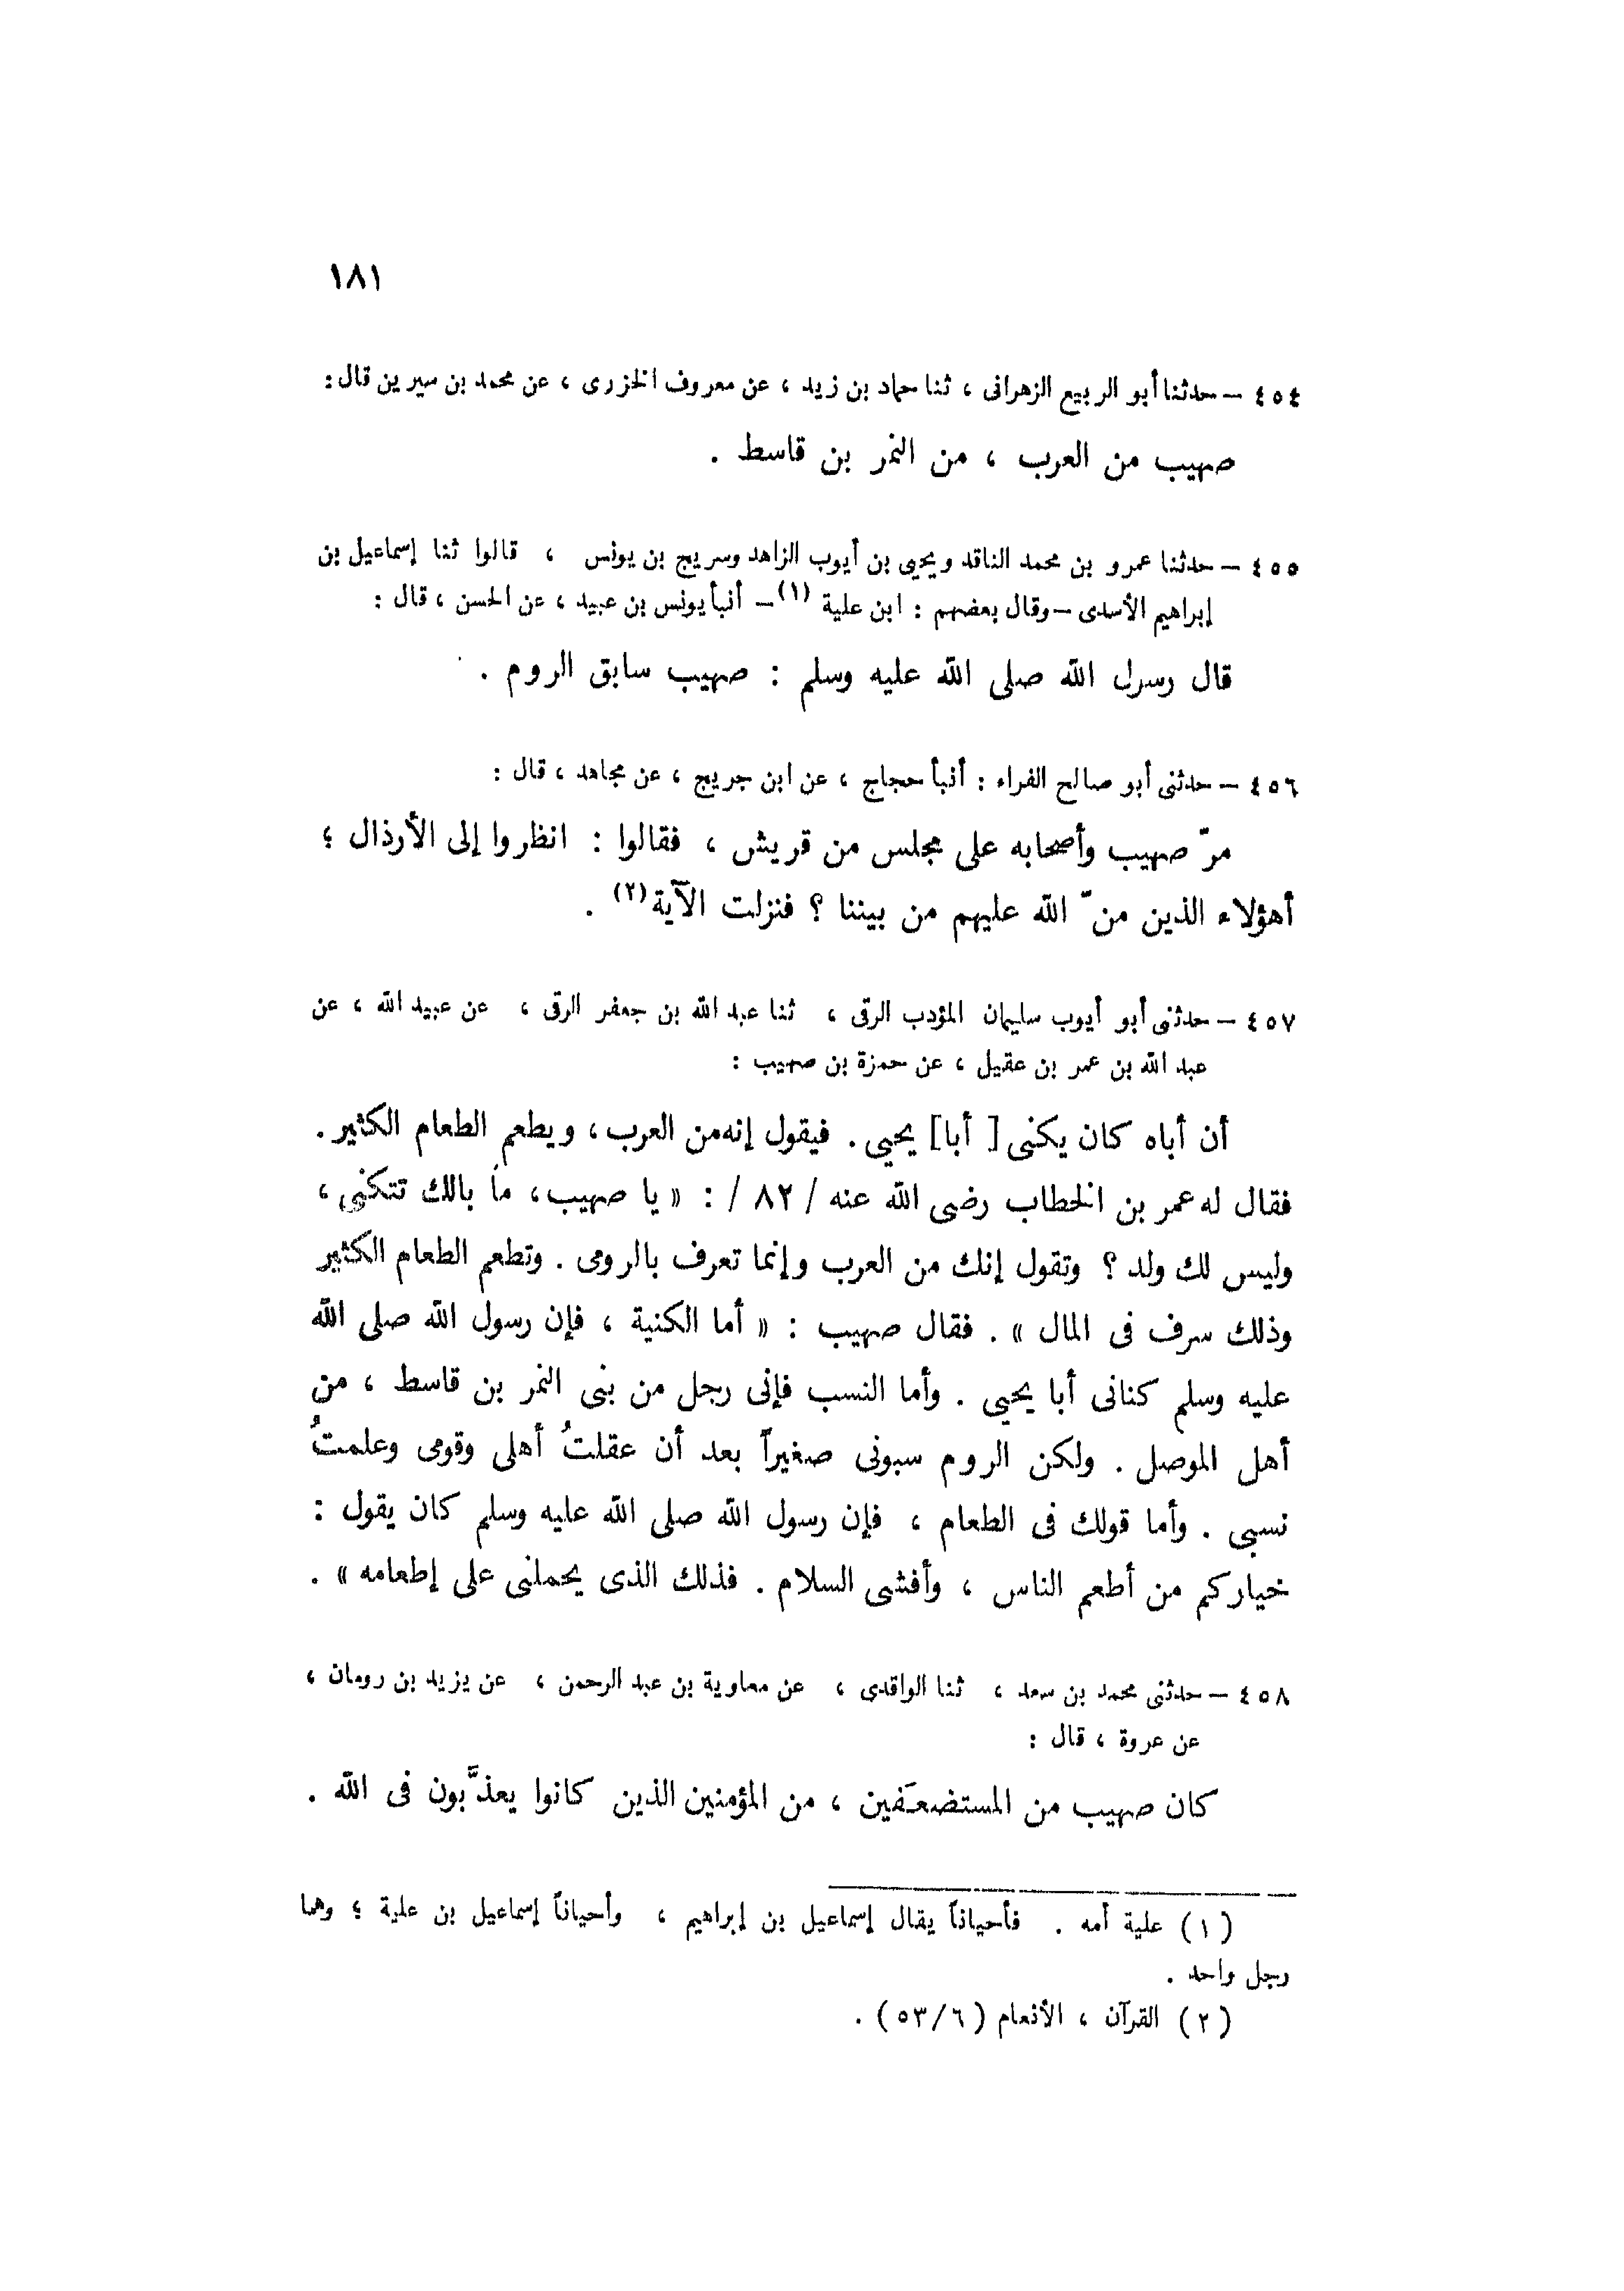 ١٨١
٤٥٤ – حدثنا أبو الربيع الزهرانى ، ثنا حماد بن زيد ، عن معروف الخزرى ، عن محمد بن سيرين قال :
صهيب من العرب ، من النمر بن قاسط .
٤٥٥ – حدثنا عمرو بن محمد الناقد ويحيى بن أيوب الزاهد وسريج بن يونس ، قالوا ثنا إسماعيل بن
إبراهيم الأسدى – وقال بعضهم : ابن علية (١) – أنبأ يونس بن عبيد ، عن الحسن ، قال :
قال رسرل الله صلى الله عليه وسلم : صهيب سابق الروم .
٤٥٦ – حدثنى أبو صالح الفراء : أنبأ حجاج ، عن ابن جريج ، عن مجاهد ، قال :
مرّ صهيب وأصحابه على مجلس من قريش ، فقالوا : انظروا إلى الأرذال ؛
أهؤلاء الذين منّ الله عليهم من بيننا ؟ فنزلت الآية (٢) .
٤٥٧ – حدثنى أبو أيوب سليمان المؤدب الرقى ، ثنا عبد الله بن جعفر الرقى ، عن عبيد الله ، عن
عبد الله بن عمر بن عقيل ، عن حمزة بن صهيب :
أن أباه كان يكنى [ أبا] يحيى . فيقول إنه من العرب ، ويطعم الطعام الكثير .
فقال له عمر بن الخطاب رضى الله عنه / ٨٢ / : « يا صهيب ، ما بالك تتكنى ،
وليس لك ولد ؟ وتقول إنك من العرب وإنما تعرف بالرومى . وتطعم الطعام الكثير
وذلك سرف فى المال » . فقال صهيب : « أما الكنية ، فإن رسول الله صلى الله
عليه وسلم كنانى أبا يحيى . وأما النسب فإنى رجل من بنى النمر بن قاسط ، من
أهل الموصل . ولكن الروم سبونى صغيراً بعد أن عقلتُ أهلى وقومى وعلمتُ
نسبى . وأما قولك فى الطعام ، فإن رسول الله صلى الله عليه وسلم كان يقول :
خياركم من أطعم الناس ، وأفشى السلام . فذلك الذى يحملنى على إطعامه » .
٤٥٨ – حدثنى محمد بن سعد ، ثنا الواقدى ، عن معاوية بن عبد الرحمن ، عن يزيد بن رومان ،
عن عروة ، قال :
كان صهيب من المستضعَفين ، من المؤمنين الذين كانوا يعذَّبون فى الله .
(١) علية أمه . فأحياناً يقال إسماعيل بن إبراهيم ، وأحياناً إسماعيل بن علية ؛ وهما
رجل واحد .
(٢) القرآن ، الأنعام (٥٣/٦) .